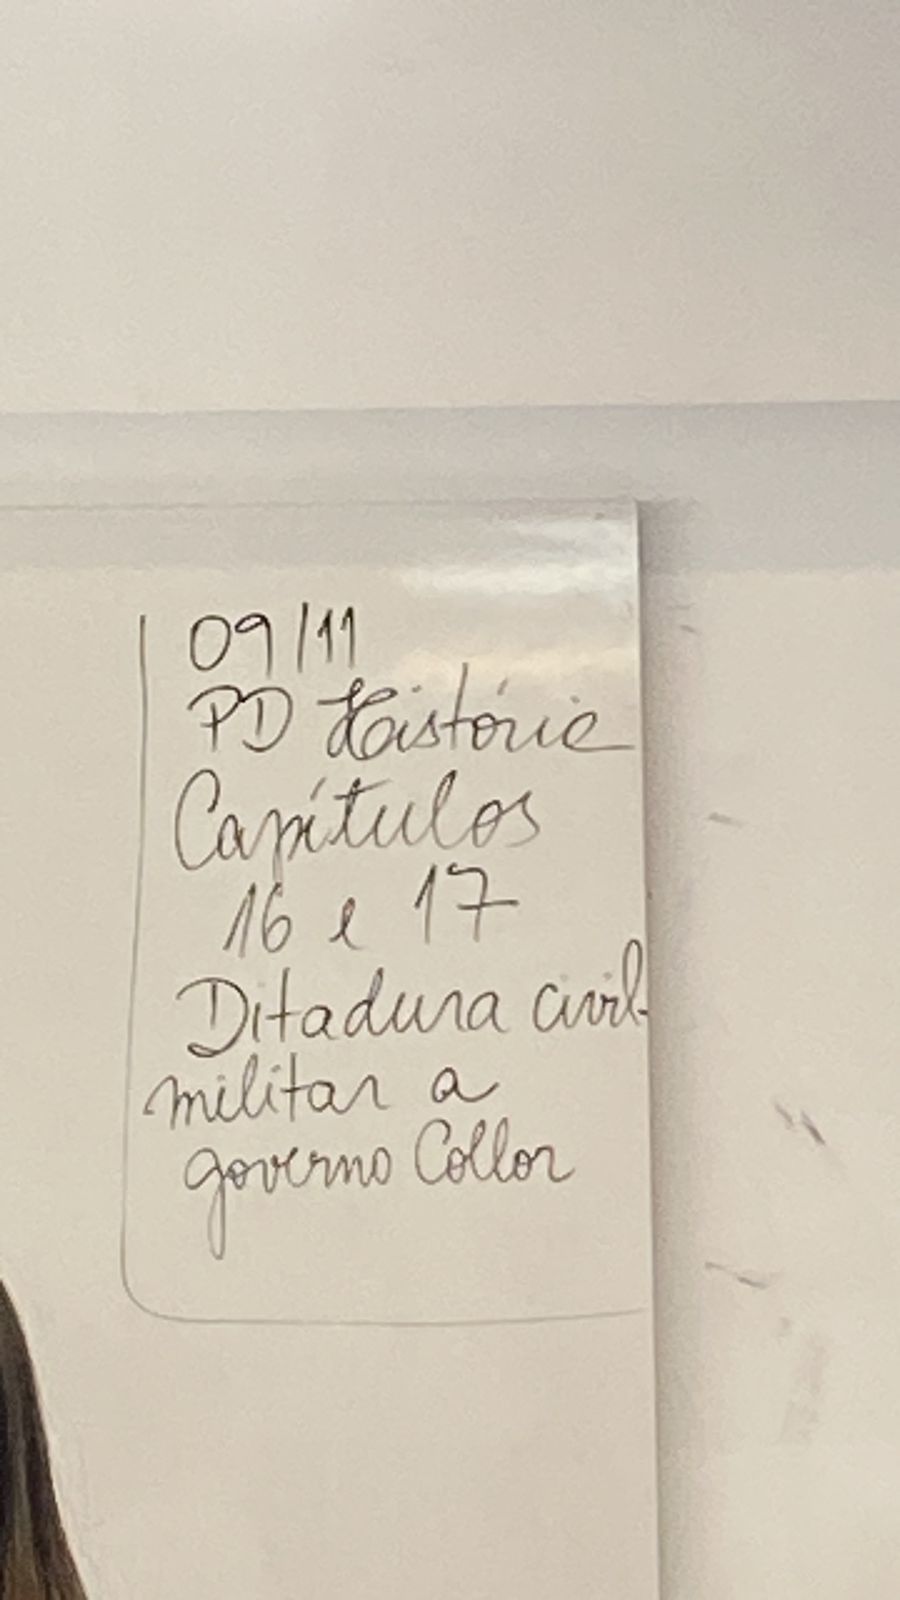 09/11
PD História
Capítulos
16 e 17
Ditadura civil-
militar a
governo Collor